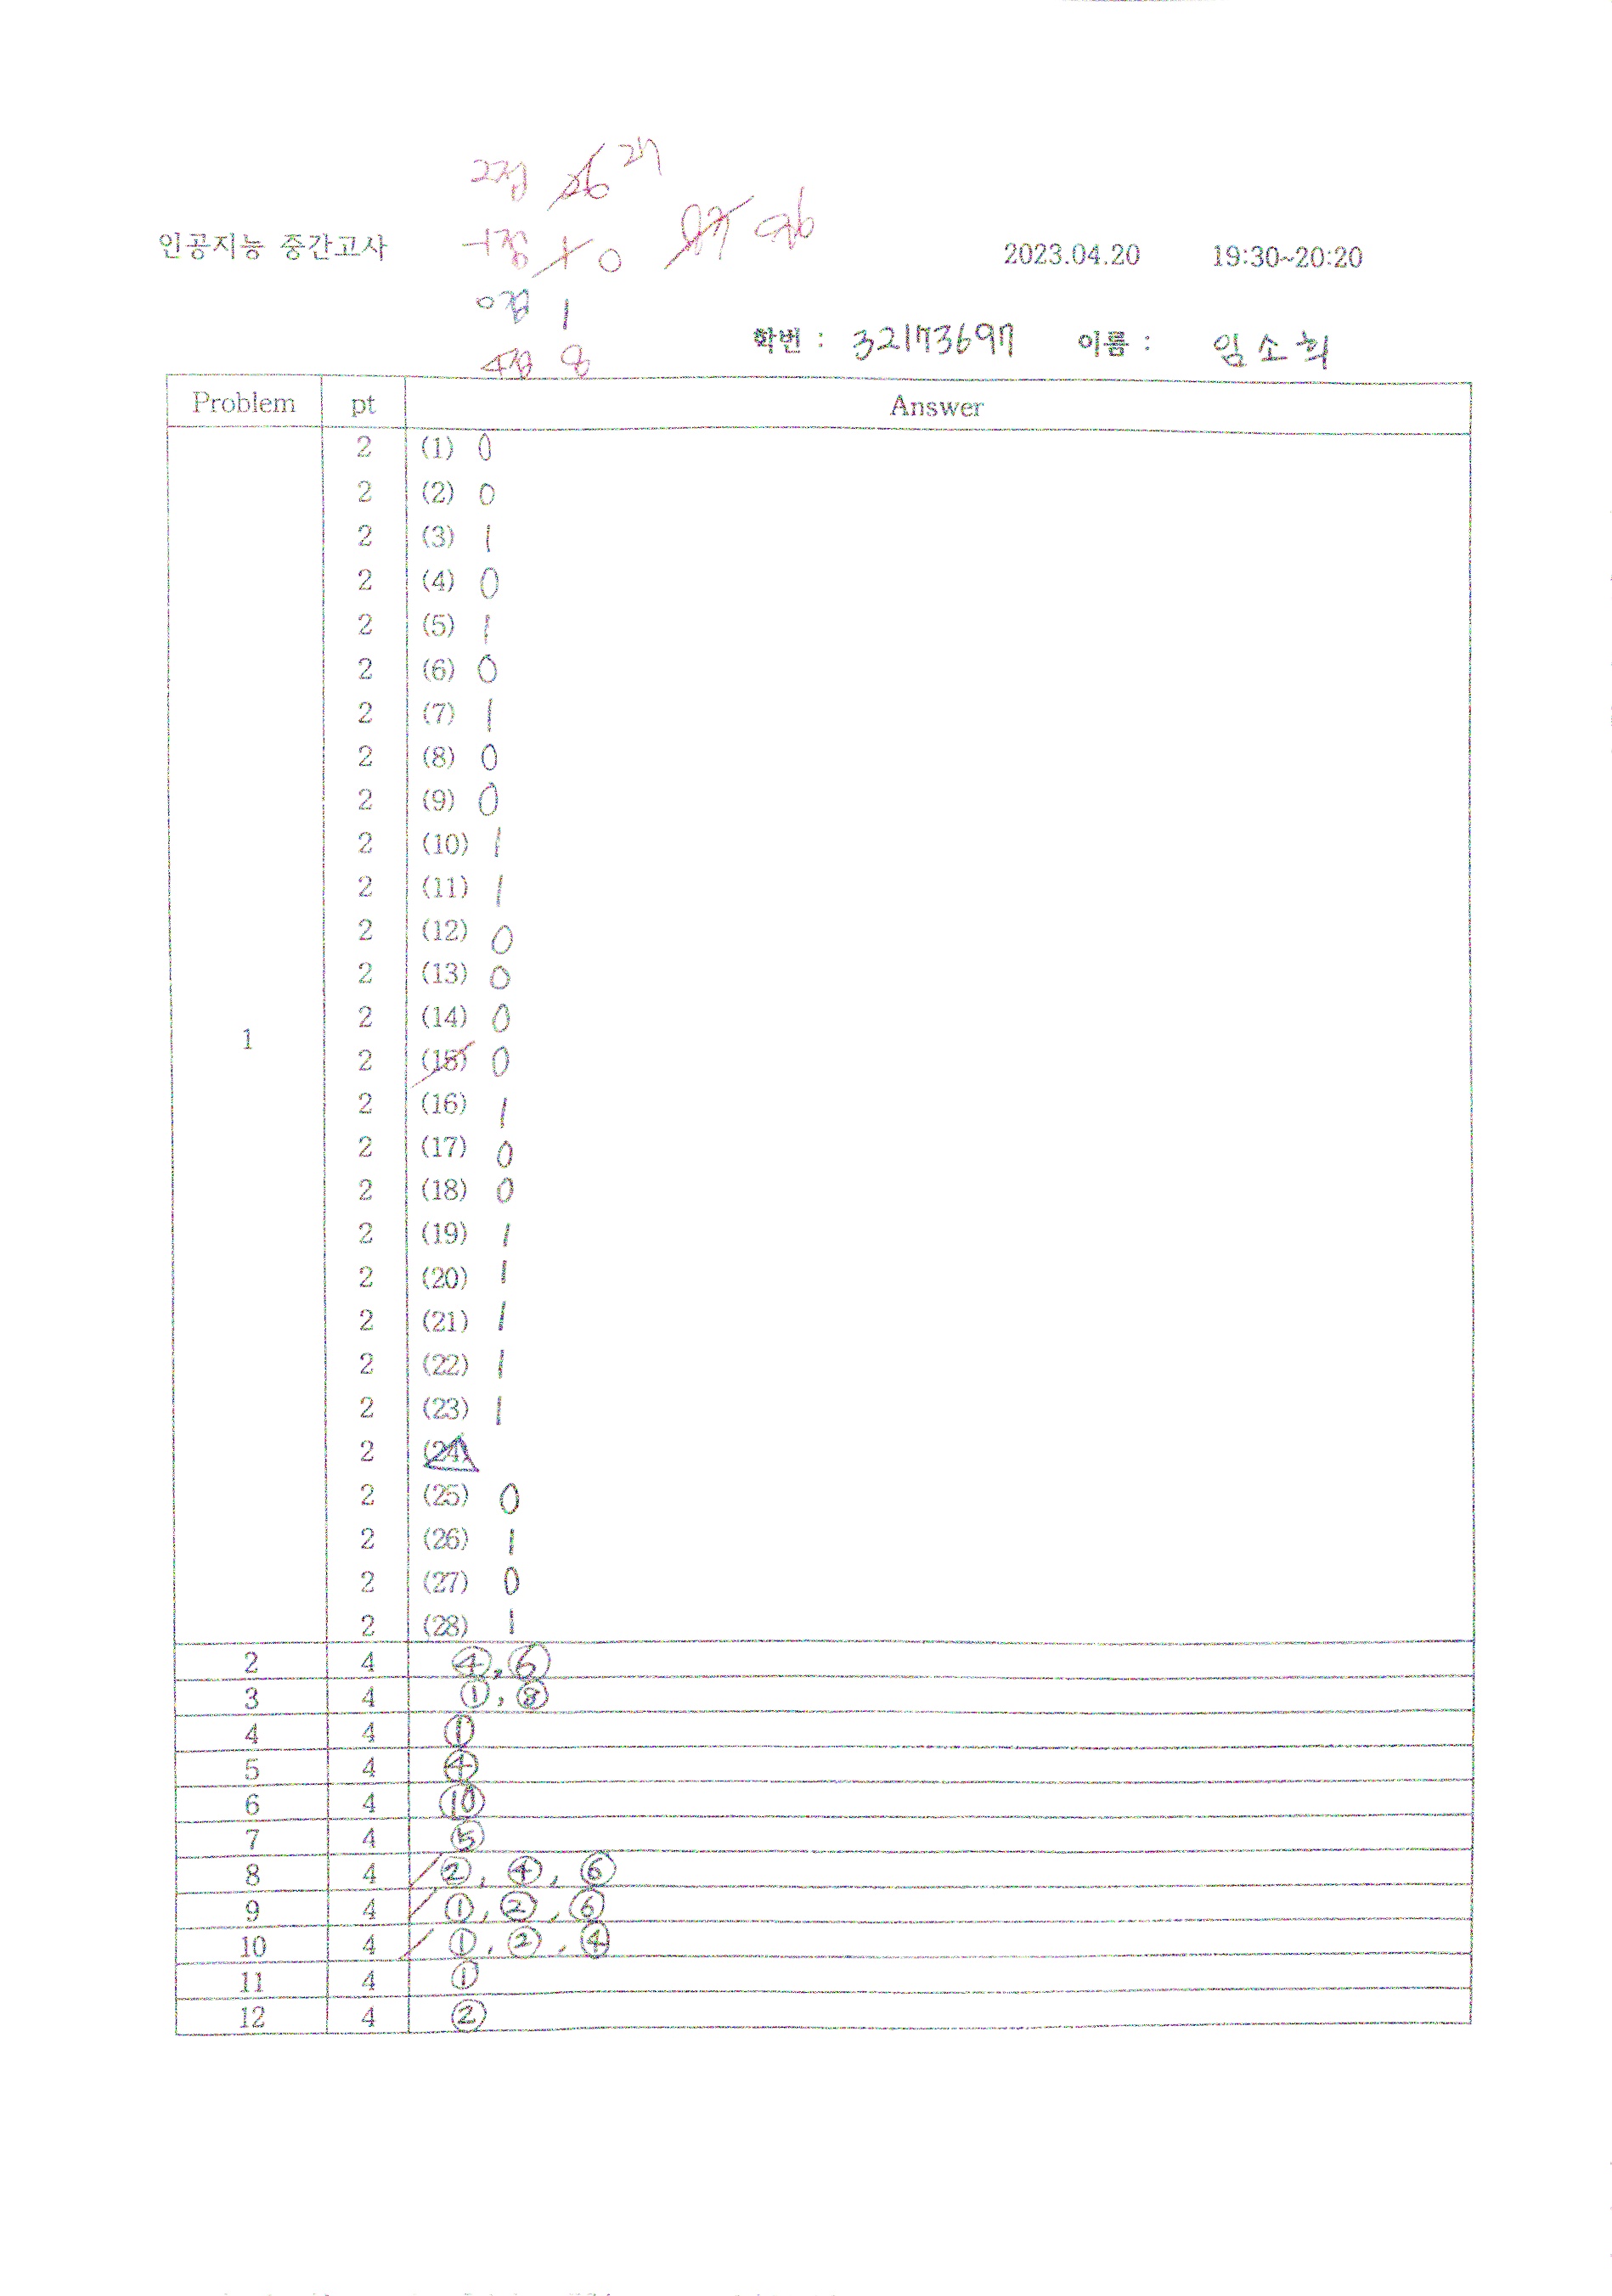 2점 26 27
인공지능 중간고사 -1점 1 0 2023.04.20 19:30~20:20
0점 1
4점 8 학번 : 32173697 이름 : 임소희
Problem pt Answer
1
2 (1) 0
2 (2) 0
2 (3) 1
2 (4) 0
2 (5) 1
2 (6) 0
2 (7) 1
2 (8) 0
2 (9) 0
2 (10) 1
2 (11) 1
2 (12) 0
2 (13) 0
2 (14) 0
2 (15) 0
2 (16) 1
2 (17) 0
2 (18) 0
2 (19) 1
2 (20) 1
2 (21) 1
2 (22) 1
2 (23) 1
2 (24)
2 (25) 0
2 (26) 1
2 (27) 0
2 (28) 1
2 4 ④, ⑥
3 4 ①, ⑧
4 4 ①
5 4 ④
6 4 ⑩
7 4 ⑤
8 4 ②, ④, ⑥
9 4 ①, ②, ⑥
10 4 ①, ②, ④
11 4 ①
12 4 ②